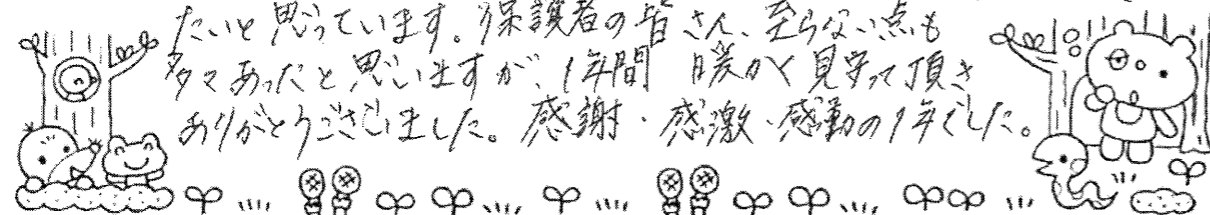 たいと思っています。保護者の皆さん、至らない点も
多々あったと思いますが、1年間 暖かく見守って頂き
ありがとうございました。感謝・感激・感動の1年でした。